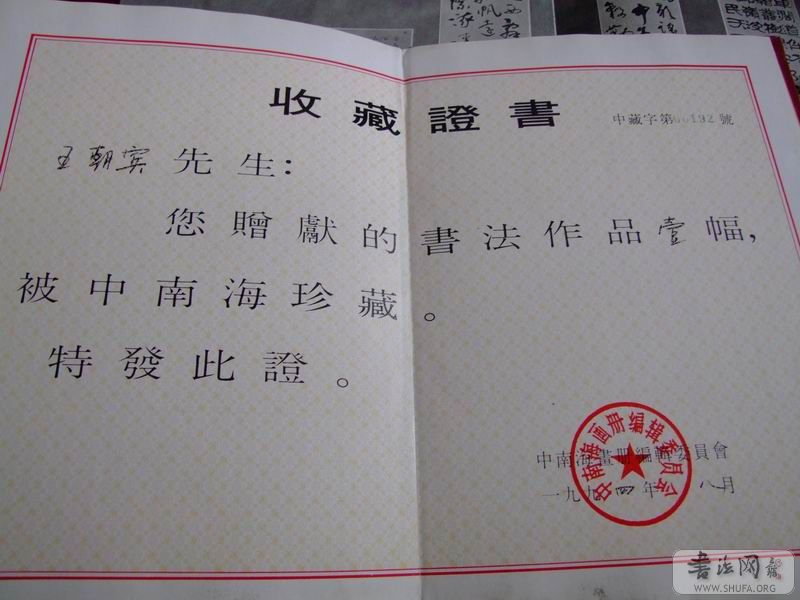 收藏證書
中藏字第00192號
王朝宾先生：
您贈獻的書法作品壹幅，
被中南海珍藏。
特發此證。
中南海畫册編輯委員會
一九九四年 八月
中南海画册编辑委员会
书法网
WWW.SHUFA.ORG